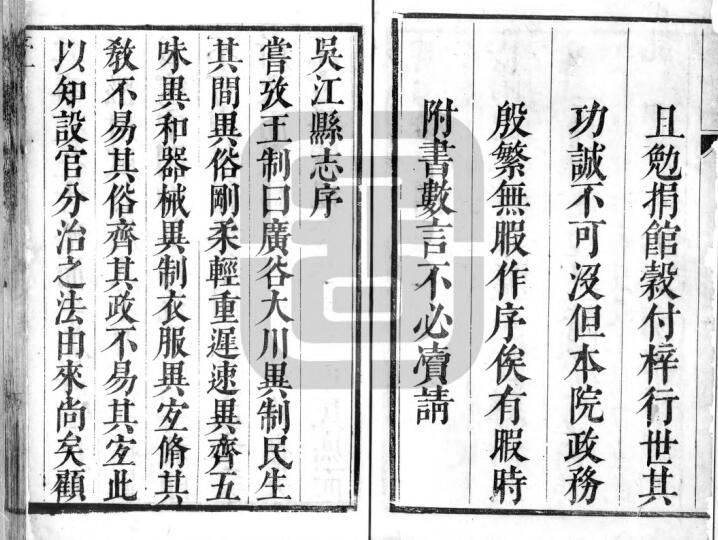 且勉捐館穀付梓行世其
功誠不可沒但本院政務
殷繁無暇作序俟有暇時
附書數言不必瀆請
吳江縣志序
嘗攷王制曰廣谷大川異制民生
其間異俗剛柔輕重遲速異齊五
味異和器械異制衣服異宐脩其
敎不易其俗齊其政不易其宐此
以知設官分治之法由來尚矣顧